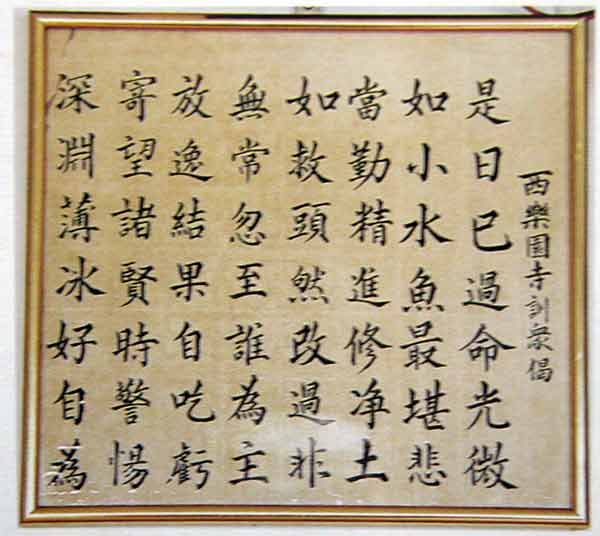 西樂園寺訓眾偈
是日已過命光微
如小水魚最堪悲
當勤精進修净土
如救頭然改過非
無常忽至誰為主
放逸結果自吃虧
寄望諸賢時警惕
深淵薄冰好自為